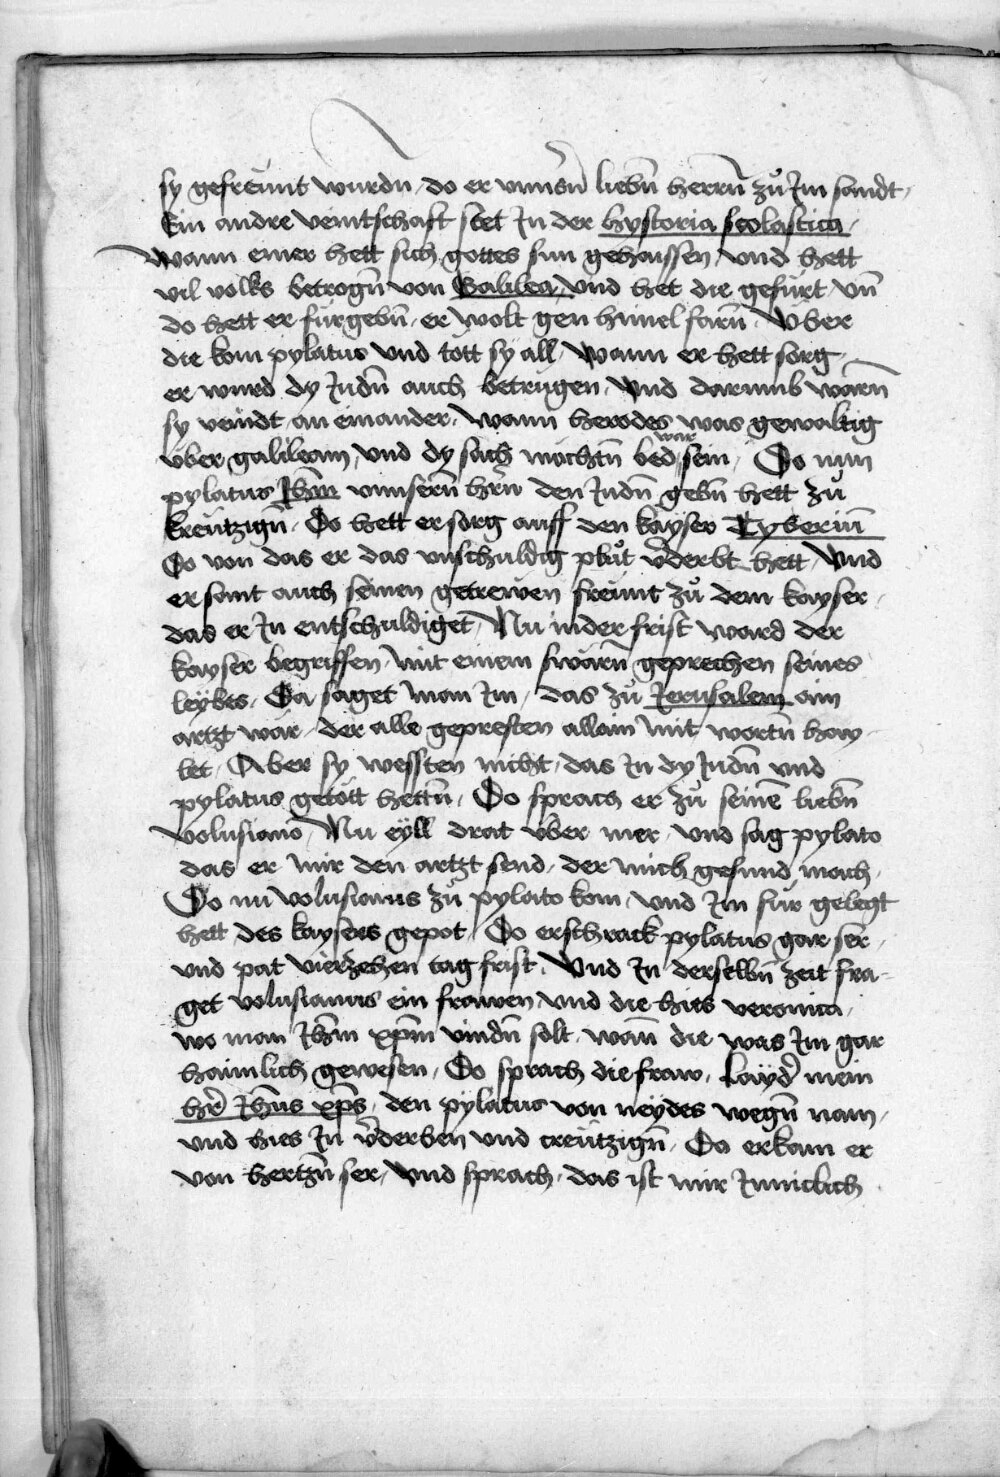 sy gefreünt wurdn · do er vnnsern̄ liebn̄ herrn̄ zů Im sandt ·
Ein andre veintschaft stet In der hystoria scolastica ·
Wann einer hett sich gottes sun gehaissen · vnd hett
vil volks betrogn̄ von Galilea · vnd het die gefürt · vn̄
do hett er fürgebn̄ · er wolt gen himel farn̄ · Vber
die kom pylatus vnd tött sy all · Wann er hett sorg ·
er wurd dy Judn̄ auch betriegen · Vnd darumb warn̄
sy veindt an einander · Wann herodes was gewaltig
über galileam · vnd dy sach möchtn̄ bed war sein · Do nun
pylatus Jhm̄ vnnsern̄ hrn̄ den Judn̄ gebn̄ hett zů
kreützign̄ · Do hett er sorg auff den kayser Tyberiū
Do von das er das vnschuldig plůt v̄derbt hett · Vnd
er sant auch seinen getrewen freünt zů dem kayser ·
das er In entschuldiget · Nu inder frist ward der
kayser begriffen · mit einem swärn̄ geprechen seines
leybes · Da saget man Im · das zů Jerusalem ain
artzt wär · der alle gepresten allain mit wortn̄ hay-
let · Aber sy wessten nicht · das In dy Judn̄ vnd
pylatus getött hettn̄ · Do sprach er zů seinē liebn̄
volusiano · Nu eyll drat über mer · vnd sag pylato
das er mir den artzt send · der mich gesund mach ·
Do nu volusianus zů pylato kom · vnd Im für gelegt
hett des kaysers gepot · Do erschrack pylatus gar ser ·
vnd pat vierzehen tag frist · Vnd In derselbn̄ zeit fra-
get volusianus ein frawen · vnd die hies veronica ·
wo man Jhm̄ xpm̄ vindn̄ solt · wan̄ die was Im gar
haimlich gewesen · Do sprach die fraw · Layd̄ mein
hr̄ Jhūs xp̄s · den pylatus von neydes wegn̄ nam ·
vnd hies In v̄derben vnd creützign̄ · Do erkam er
von hertzn̄ ser · vnd sprach · das ist mir Inniclich